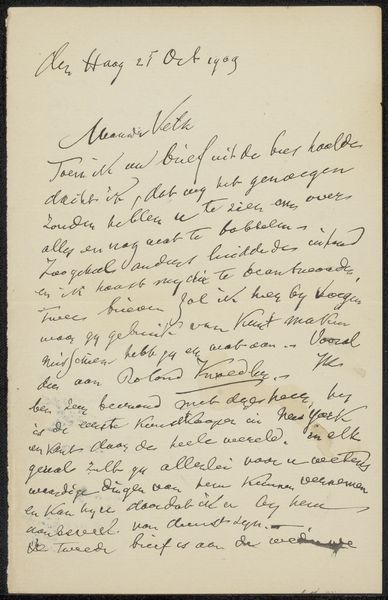 den Haag 25 Oct 1909
Meneer Veth
Toen ik uw brief uit de bus haalde
dacht ik, dat wij het genoegen
zouden hebben u te zien om over
alles en nog wat te babbelen.
en ik haast mij die te beantwoorden
Twee brieven zal ik hier bij voegen
waar gij gebruik van kunt maken
misschien hebt gij er wat aan. Vooral
den aan Roland Knoedler. Ik
ben zeer bevriend met dezen heer, hij
is de eerste kunstkooper in New York
en kent daar de heele wereld. in elk
geval zult gij allerlei voor u wetens
waardige dingen van hem kunnen vernemen
en kan hij u doordat ik u bij hem
aanbeveel van dienst zijn.
de tweede brief is aan de